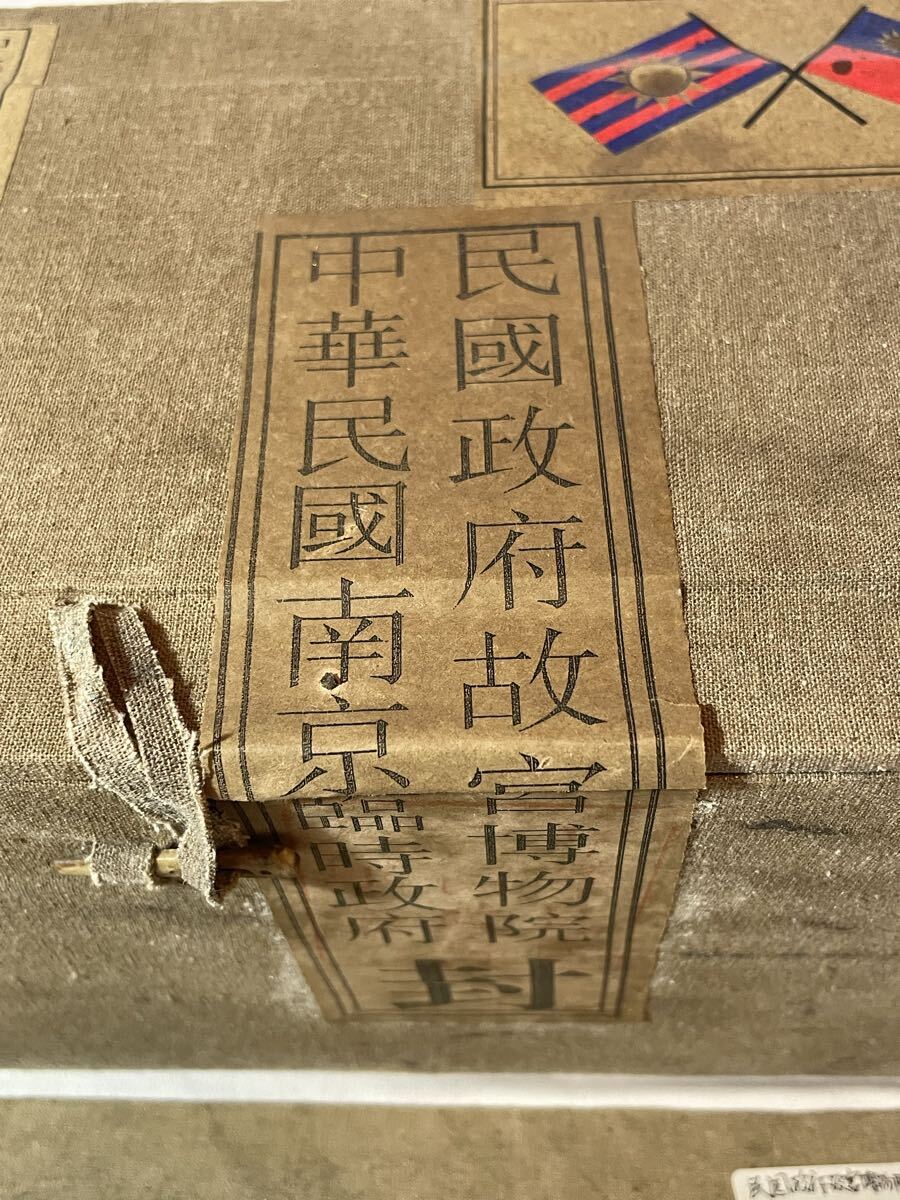 民國政府故宮博物院
中華民國南京臨時政府
封